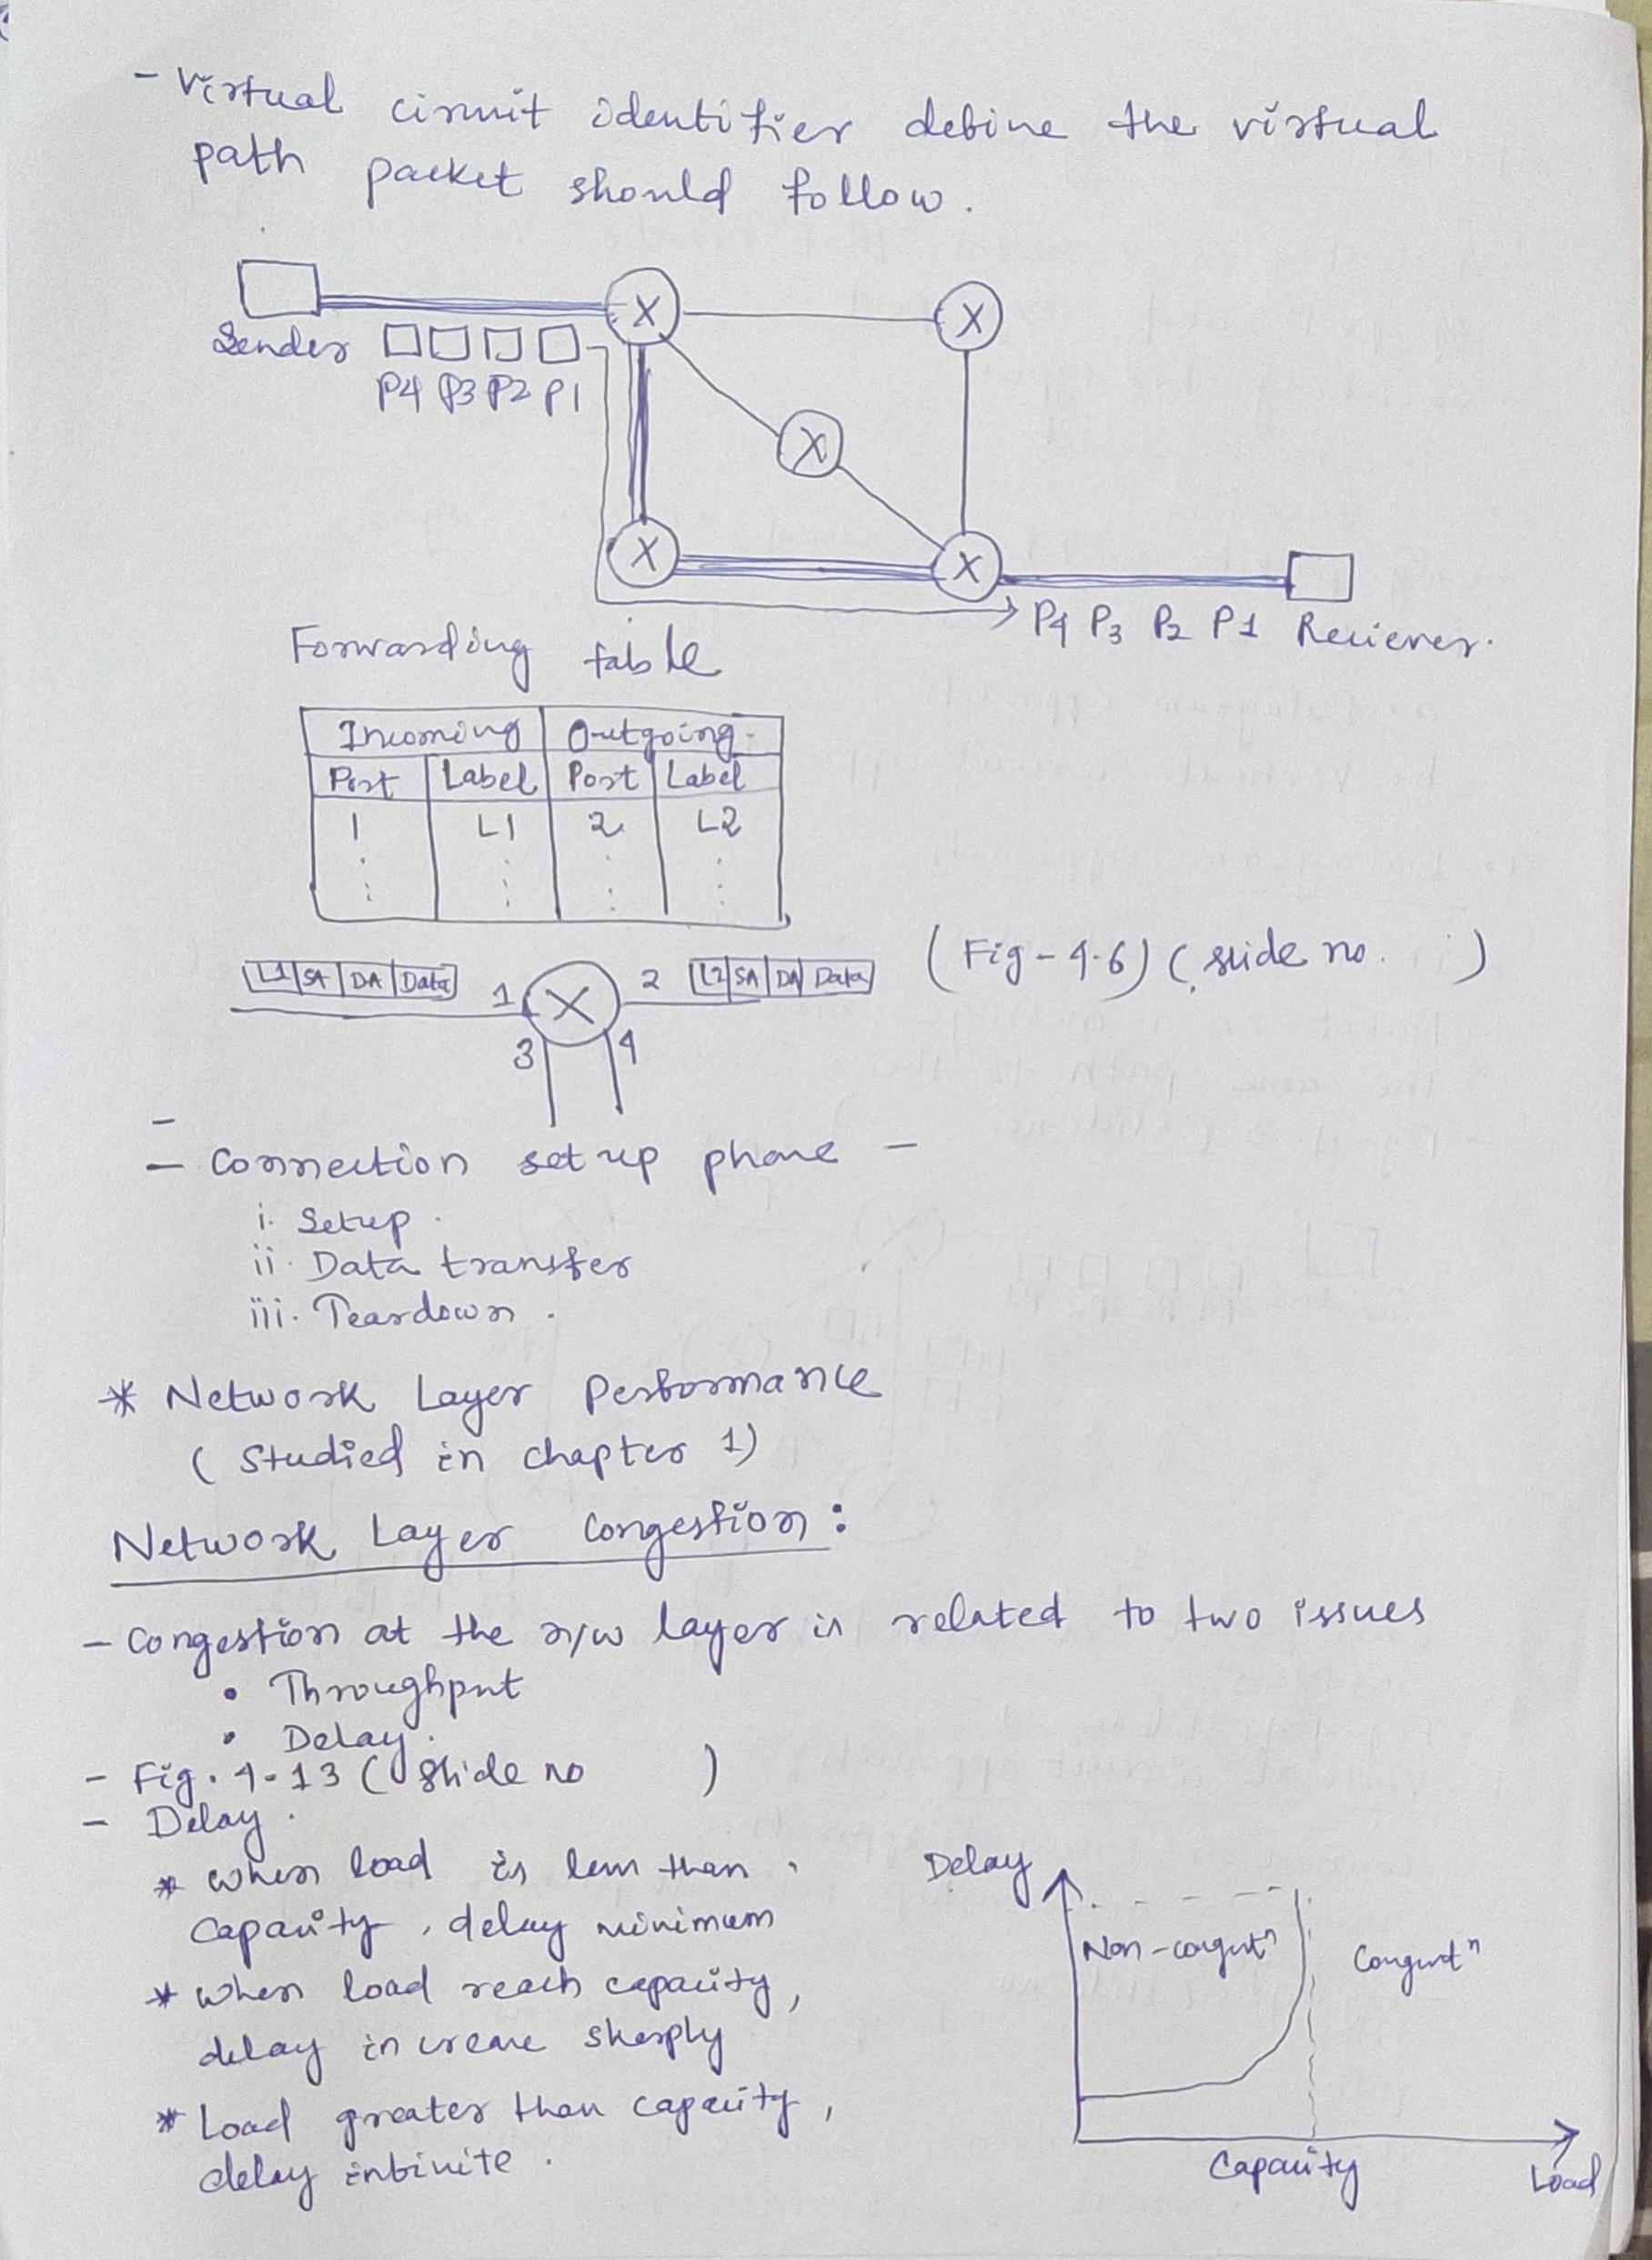 - Virtual circuit identifier define the virtual
path packet should follow.
Sender
P4 P3 P2 P1
P4 P3 P2 P1 Reciever.
Forwarding table
Incoming Outgoing.
Port Label Port Label
1 L1 2 L2
L1 SA DA Data 1 2 L2 SA DA Data (Fig-4.6) (slide no. )
3 4
-
- Connection setup phase -
i. Setup.
ii. Data transfer
iii. Teardown.
* Network Layer Performance
(Studied in chapter 1)
Network Layer Congestion:
- Congestion at the n/w layer is related to two issues
• Throughput
• Delay.
- Fig. 4.13 (Slide no )
- Delay.
* when load is less than
capacity, delay minimum
* when load reach capacity,
delay increase sharply
* Load greater than capacity,
delay infinite.
Delay
Non-congestⁿ Congestⁿ
Capacity Load